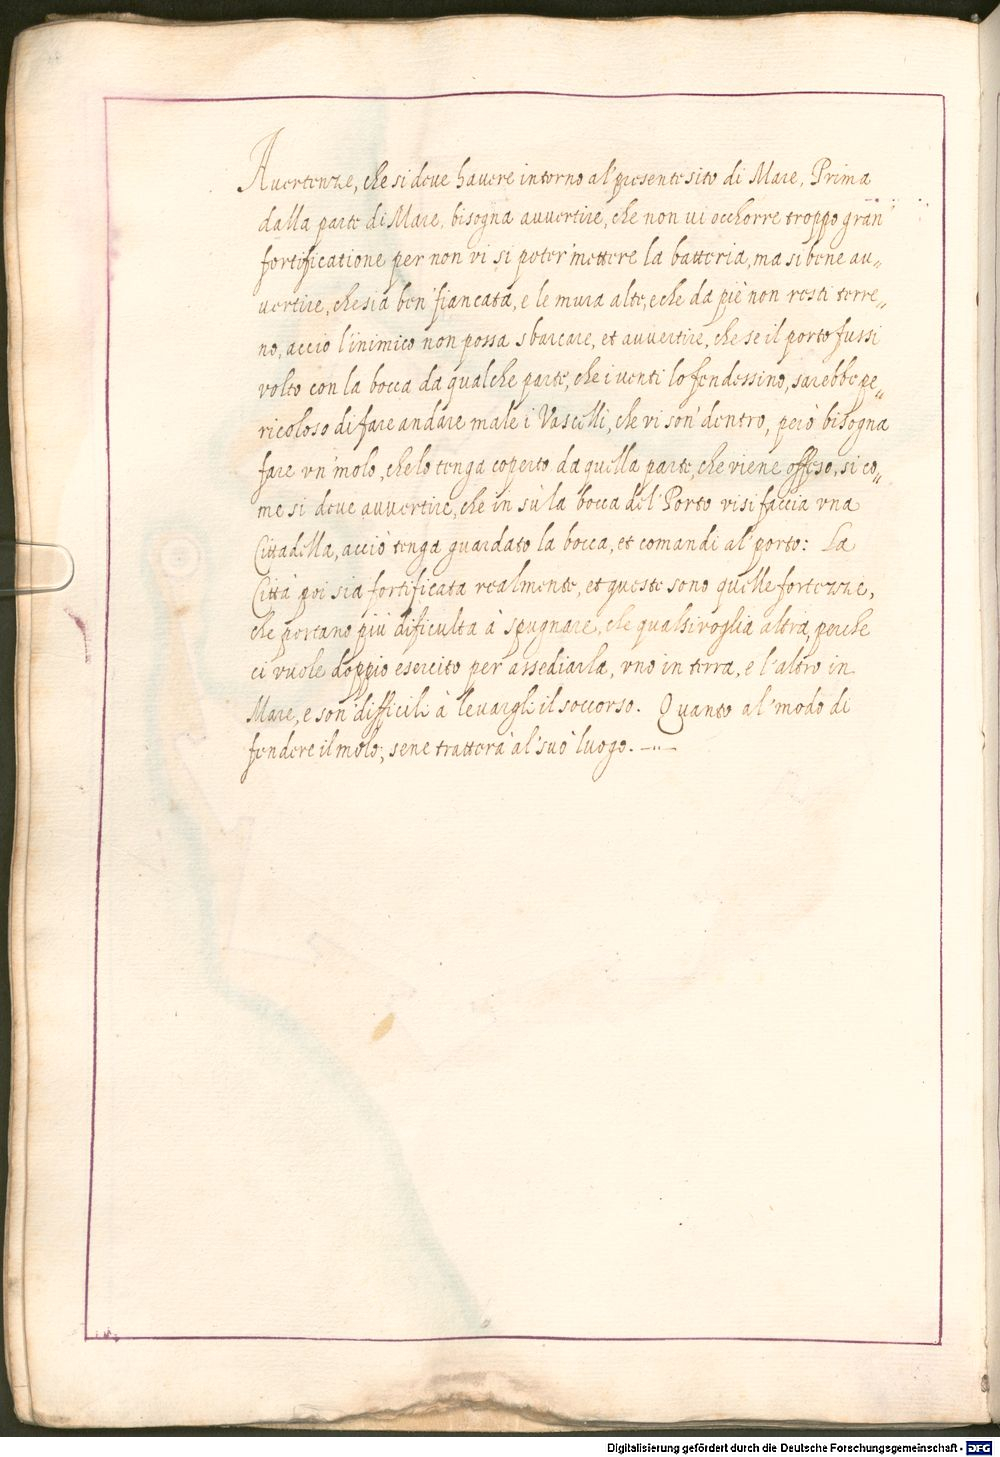 Auertenze, che si deue hauere intorno al' presente sito di Mare, Prima
dalla parte di Mare, bisogna auuertire, che non ui occhorre troppo gran'
fortificatione per non vi si poter' mettere la batteria, ma si bene au„
uertire, che sia ben' fiancata, e le mura alte, e che da piè non resti terre„
no, acciò l'inimico non possa sbarcare, et auuertire, che se il porto fussi
volto con la bocca da qualche parte, che i uenti lo fendessino, sarebbe pe„
ricoloso di fare andare male i Vascelli, che vi son' dentro, però bisogna
fare vn' molo, che lo tenga coperto da quella parte, che viene offeso, si co„
me si deue auuertire, che in sù la bocca del' Porto vi si faccia vna
Cittadella, acciò tenga guardato la bocca, et comandi al' porto: La
Città poi sia fortificata realmente, et queste sono quelle fortezze,
che portano più dificulta à spugnare, che qualsiuoglia altra, perche
ci vuole doppio esercito per assediarla, vno in terra, e l'altro in
Mare, e son' difficili à leuargli il soccorso. Quanto al' modo di
fondere il molo; sene tratterà al' suo luogo.
Digitalisierung gefördert durch die Deutsche Forschungsgemeinschaft - DFG